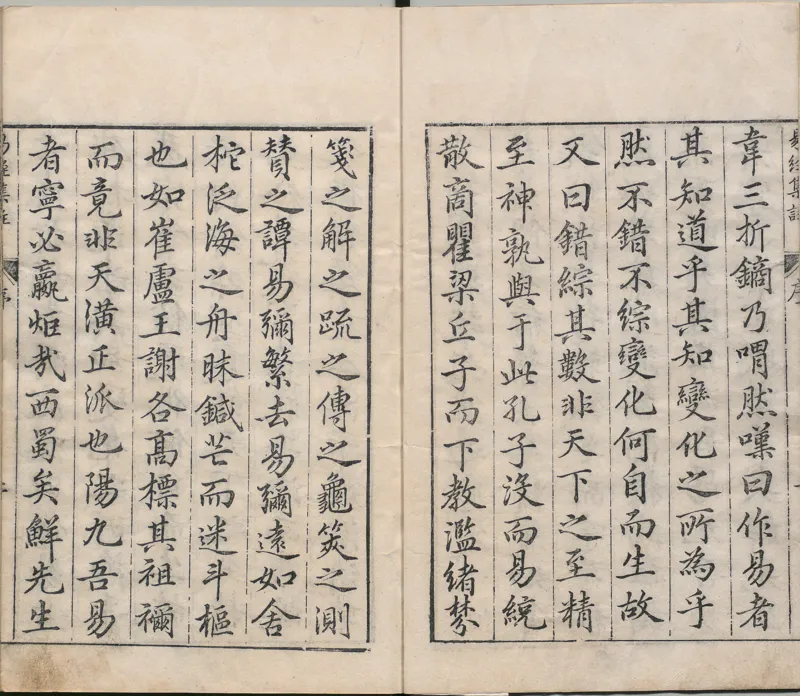 韋三折鏑乃喟然嘆曰作易者
其知道乎其知變化之所為乎
然不錯不綜變化何自而生故
又曰錯綜其數非天下之至精
至神孰與于此孔子沒而易統
散商瞿梁丘子而下教濫緒棼
箋之解之疏之傳之龜筴之測
贊之譚易彌繁去易彌遠如舍
柁泛海之舟昧鍼芒而迷斗樞
也如崔盧王謝各髙標其祖禰
而竟非天潢正派也陽九吾易
者寧必嬴炬哉西蜀矣鮮先生
易經集註
序